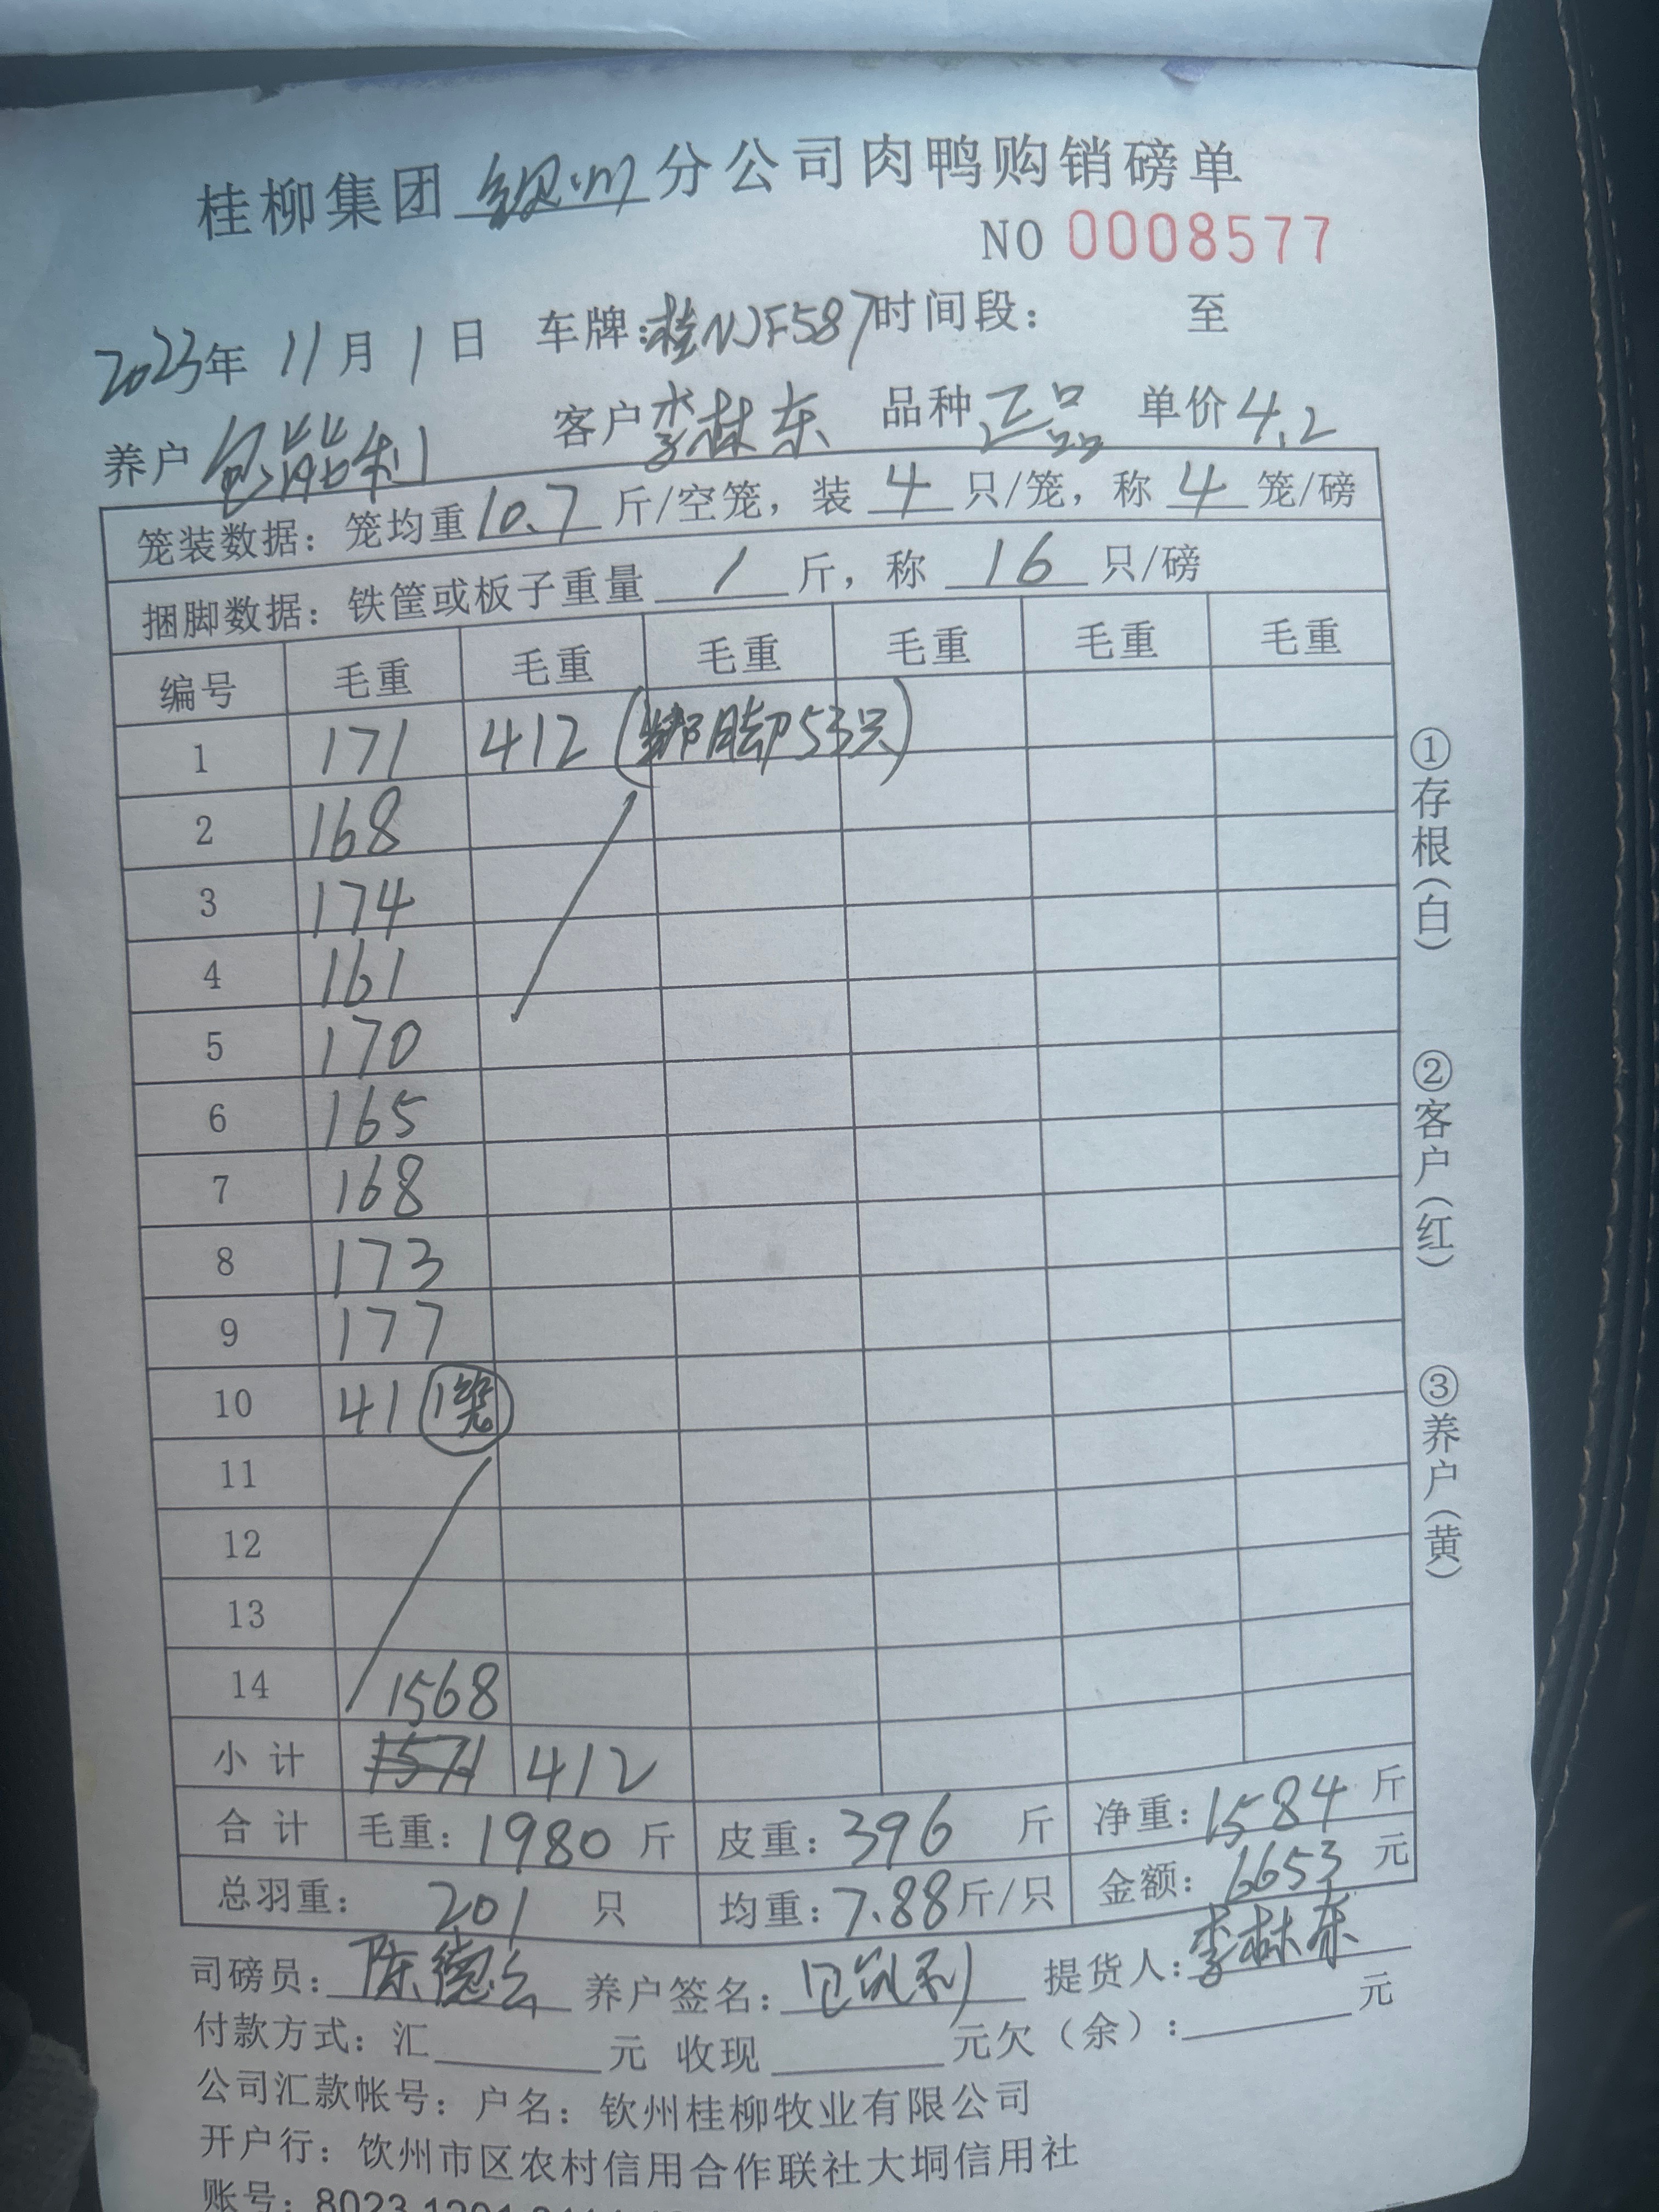 桂柳集团 钦州 分公司肉鸭购销磅单
NO 0008577
2023年 11月 1日 车牌:桂NJF587 时间段: 至
养户 包能利 客户 李林东 品种 正品 单价 4.2
笼装数据: 笼均重 10.7 斤/空笼, 装 4 只/笼, 称 4 笼/磅
捆脚数据: 铁筐或板子重量 / 斤, 称 16 只/磅
编号 毛重 毛重 毛重 毛重 毛重 毛重
1 171 412 (绑脚53只)
2 168
3 174
4 161
5 170
6 165
7 168
8 173
9 177
10 41 1笼
11
12
13
14 1568
小计 1571 412
合计 毛重: 1980 斤 皮重: 396 斤 净重: 1584 斤
总羽重: 201 只 均重: 7.88 斤/只 金额: 6653 元
司磅员: 陈德云 养户签名: 提货人: 李林东
付款方式: 汇 元 收现 元欠（余）: 元
公司汇款帐号: 户名: 钦州桂柳牧业有限公司
开户行: 钦州市区农村信用合作联社大垌信用社
账号: 8023 1201
①存根(白)
②客户(红)
③养户(黄)